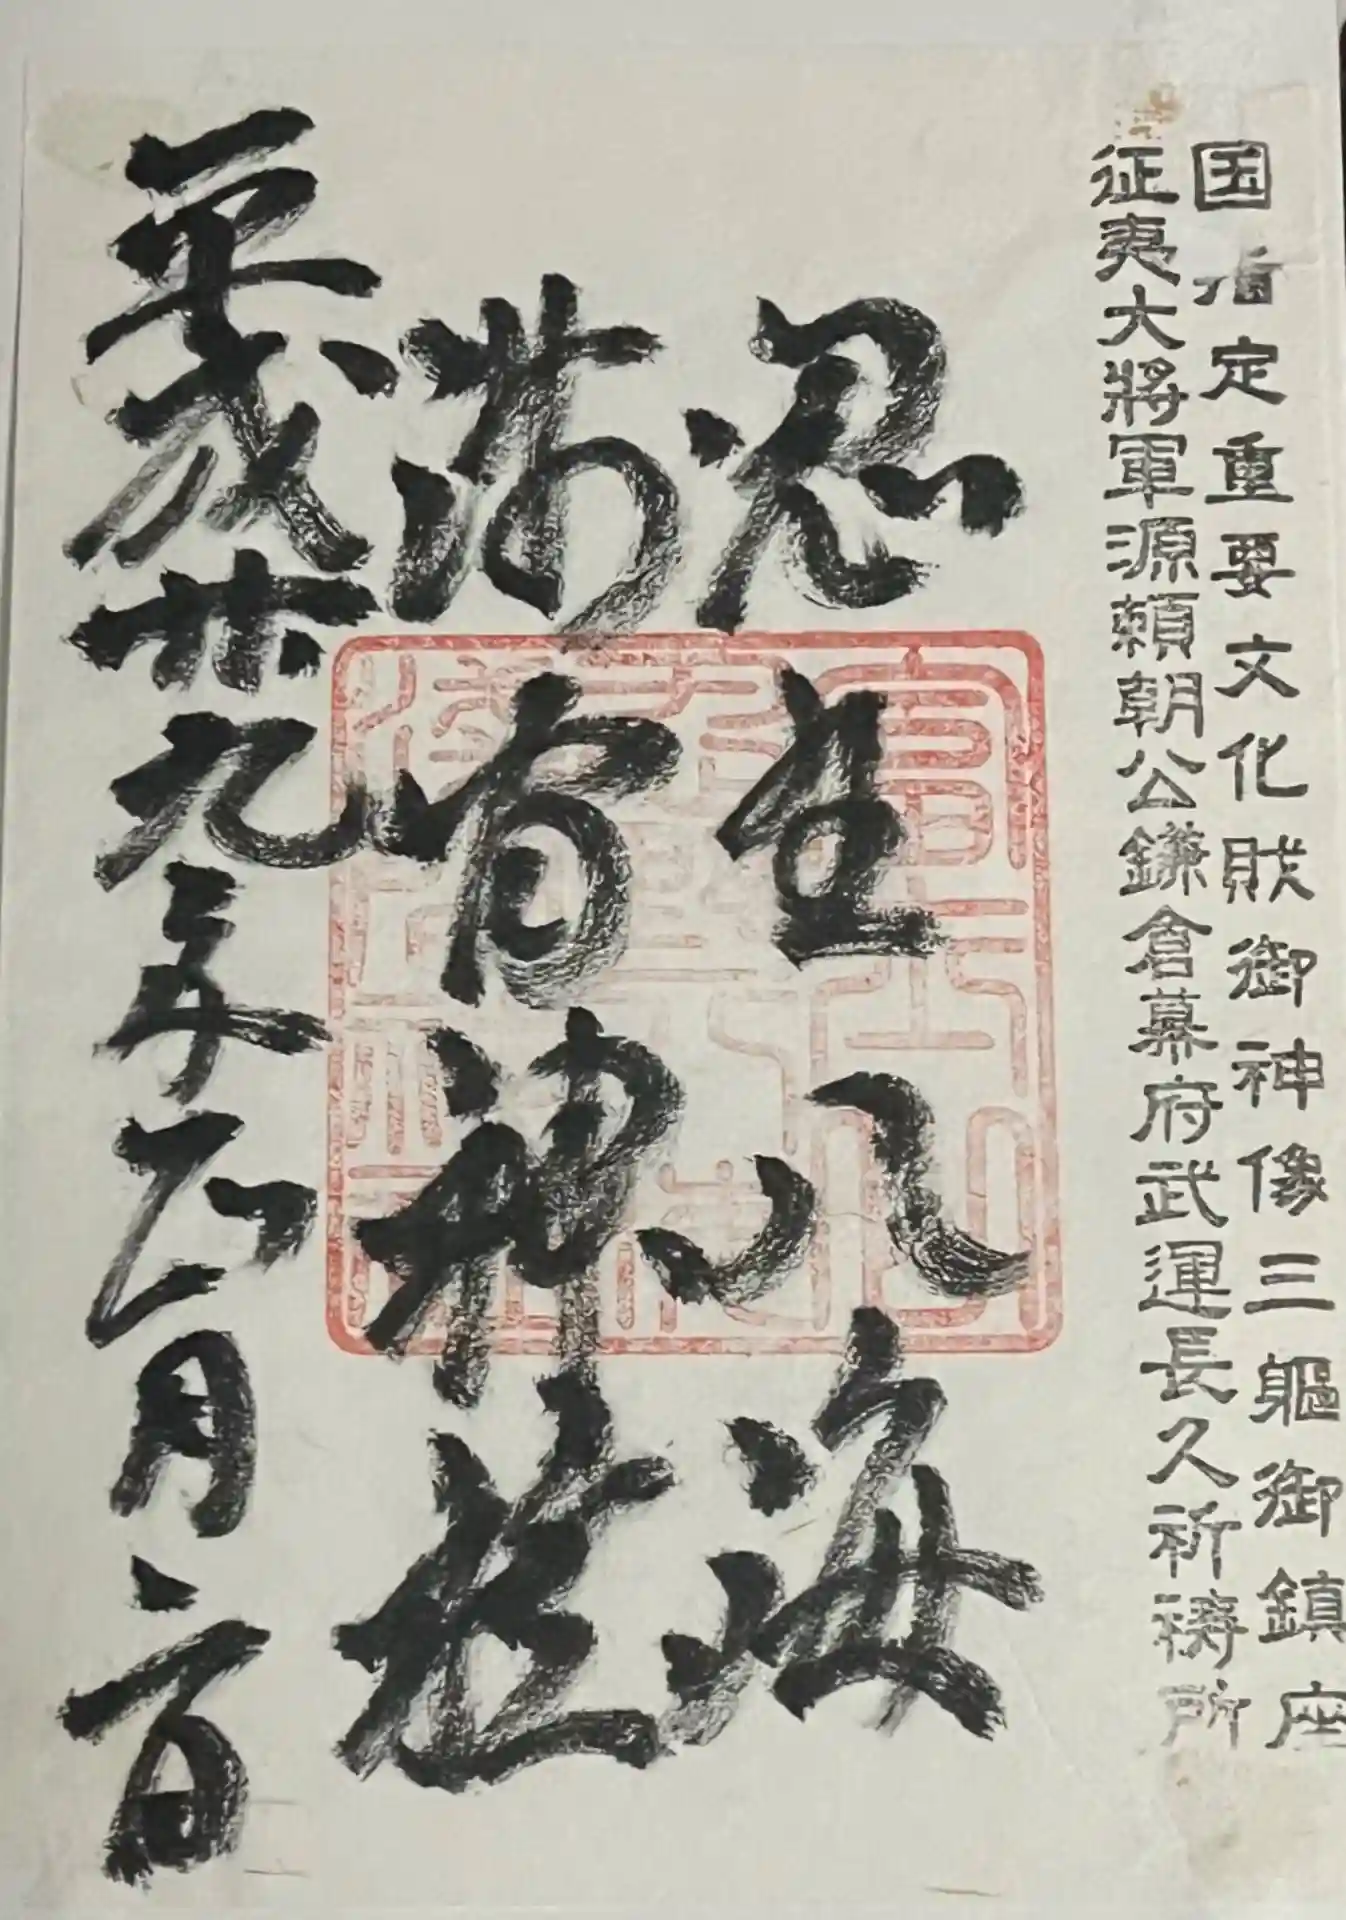 国指定重要文化財御神像三軀御鎮座
征夷大將軍源頼朝公鎌倉幕府武運長久祈禱所
忍野八海
浅間神社
平成廿九年五月日